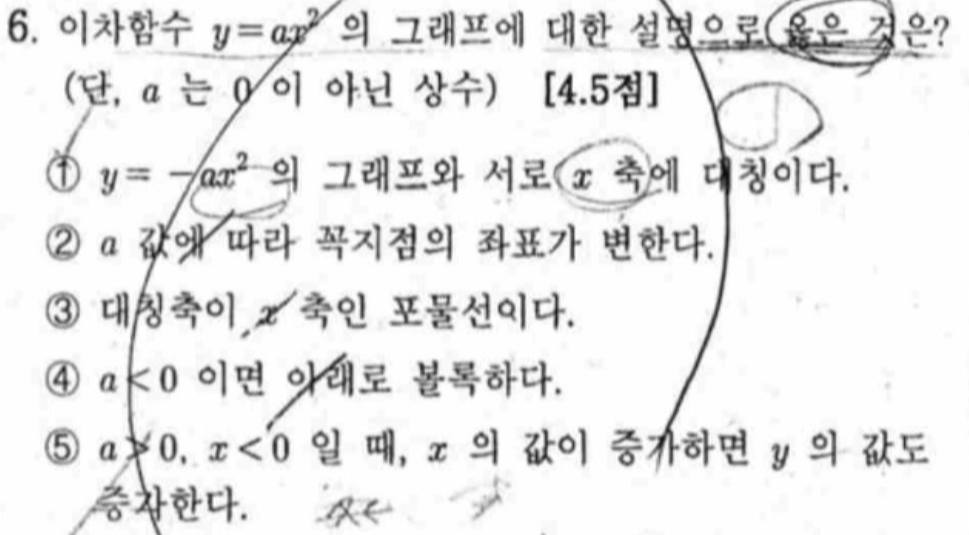 6. 이차함수 y=ax² 의 그래프에 대한 설명으로 옳은 것은?
(단, a 는 0 이 아닌 상수) [4.5점]
① y= -ax² 의 그래프와 서로 x 축에 대칭이다.
② a 값에 따라 꼭지점의 좌표가 변한다.
③ 대칭축이 x 축인 포물선이다.
④ a<0 이면 아래로 볼록하다.
⑤ a>0, x<0 일 때, x 의 값이 증가하면 y 의 값도
증가한다.